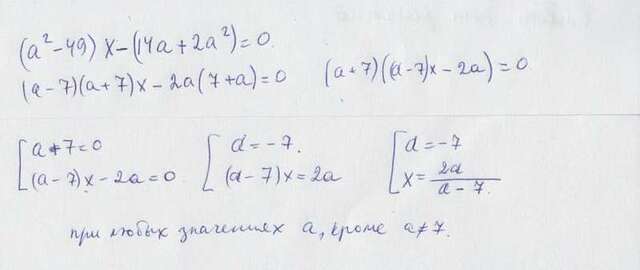 (a²-49)x-(14a+2a²)=0.
(a-7)(a+7)x-2a(7+a)=0 (a+7)((a-7)x-2a)=0
[a+7=0 [a=-7. [a=-7
(a-7)x-2a=0. (a-7)x=2a x=2a/(a-7).
при любых значениях a, кроме a≠7.